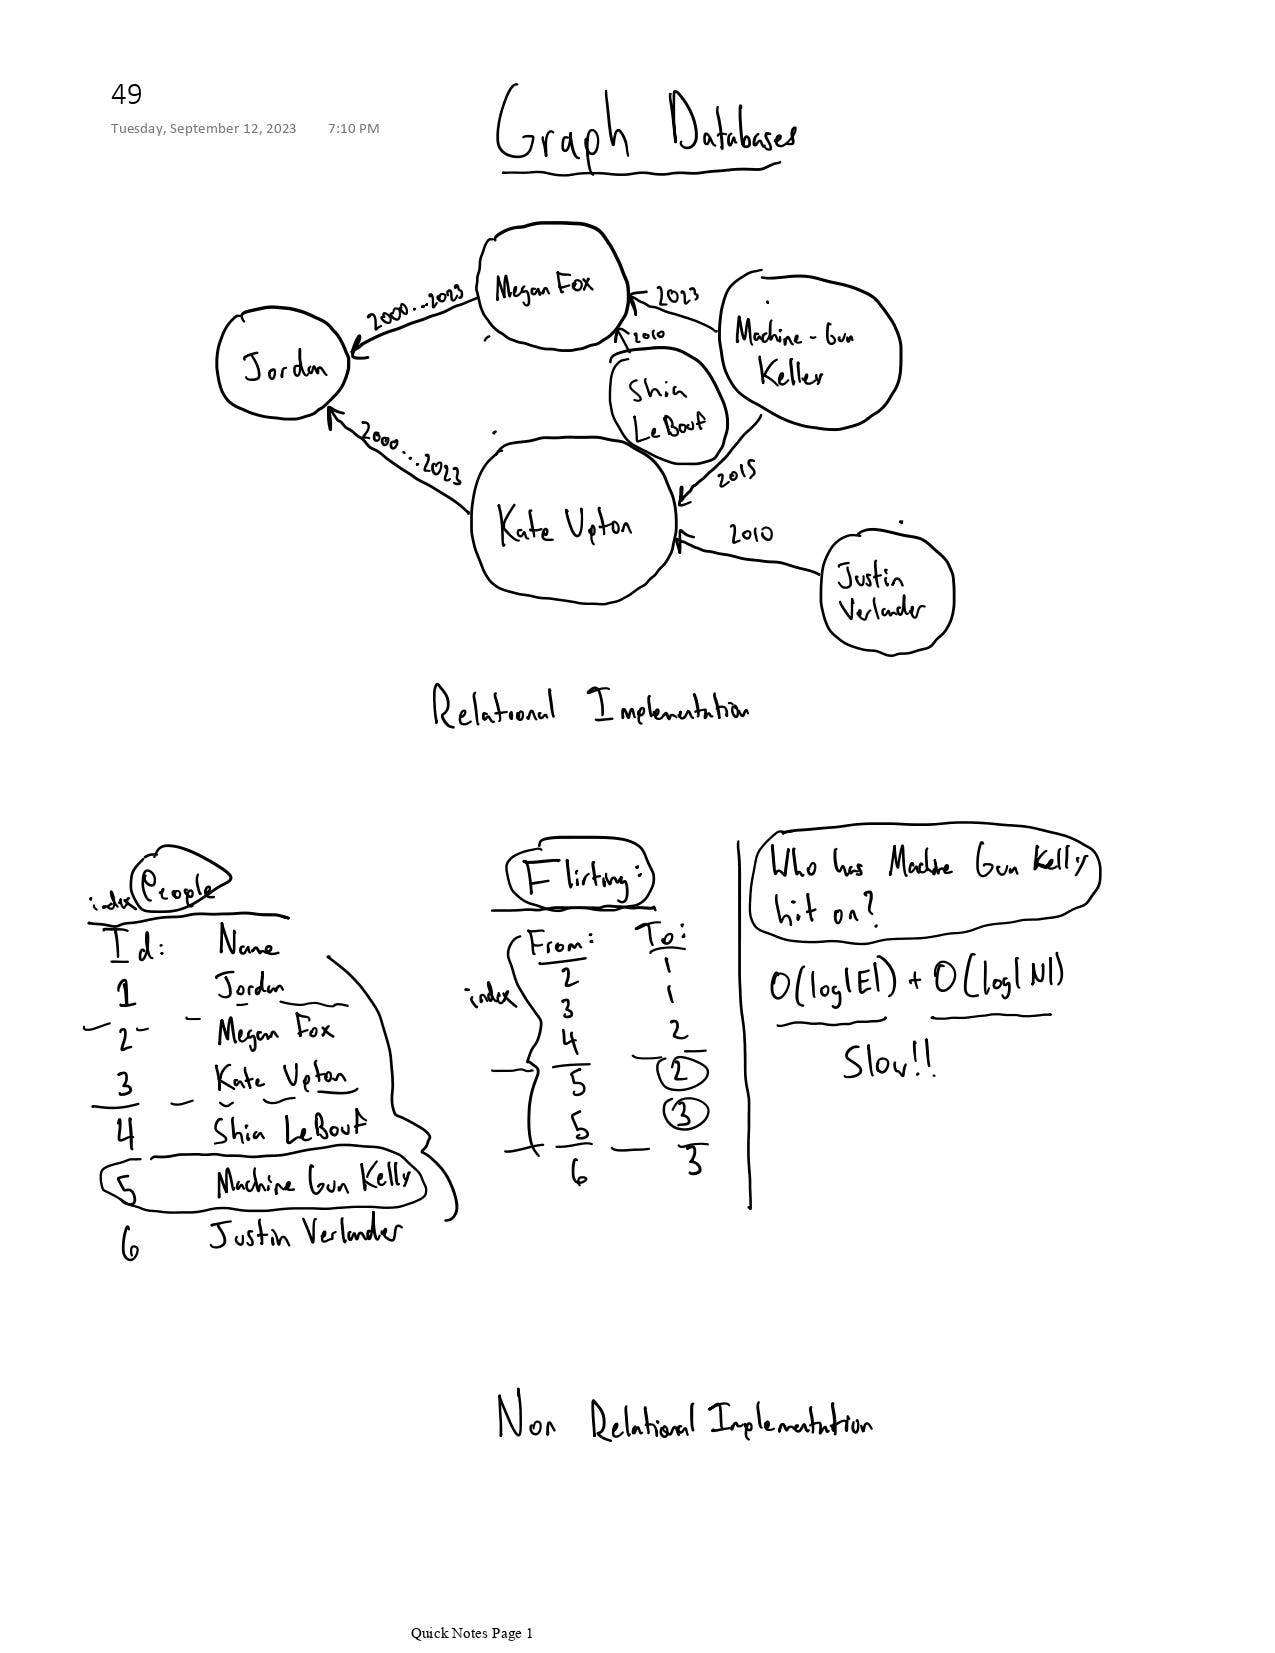 49
Tuesday, September 12, 2023 7:10 PM
Graph Databases
Megan Fox
2000...2023
2023
Machine-Gun
Keller
2010
Jordan
Shia
LeBouf
2000...2023
2015
Kate Upton
2010
Justin
Verlander
Relational Implementation
index People
Id: Name
1 Jordan
2 Megan Fox
3 Kate Upton
4 Shia LeBouf
5 Machine Gun Kelly
6 Justin Verlander
Flirting:
From: To:
index
2 1
3 1
4 2
5 2
5 3
6 3
Who has Machine Gun Kelly
hit on?
O(log|E|) + O(log|N|)
Slow!!
Non Relational Implementation
Quick Notes Page 1